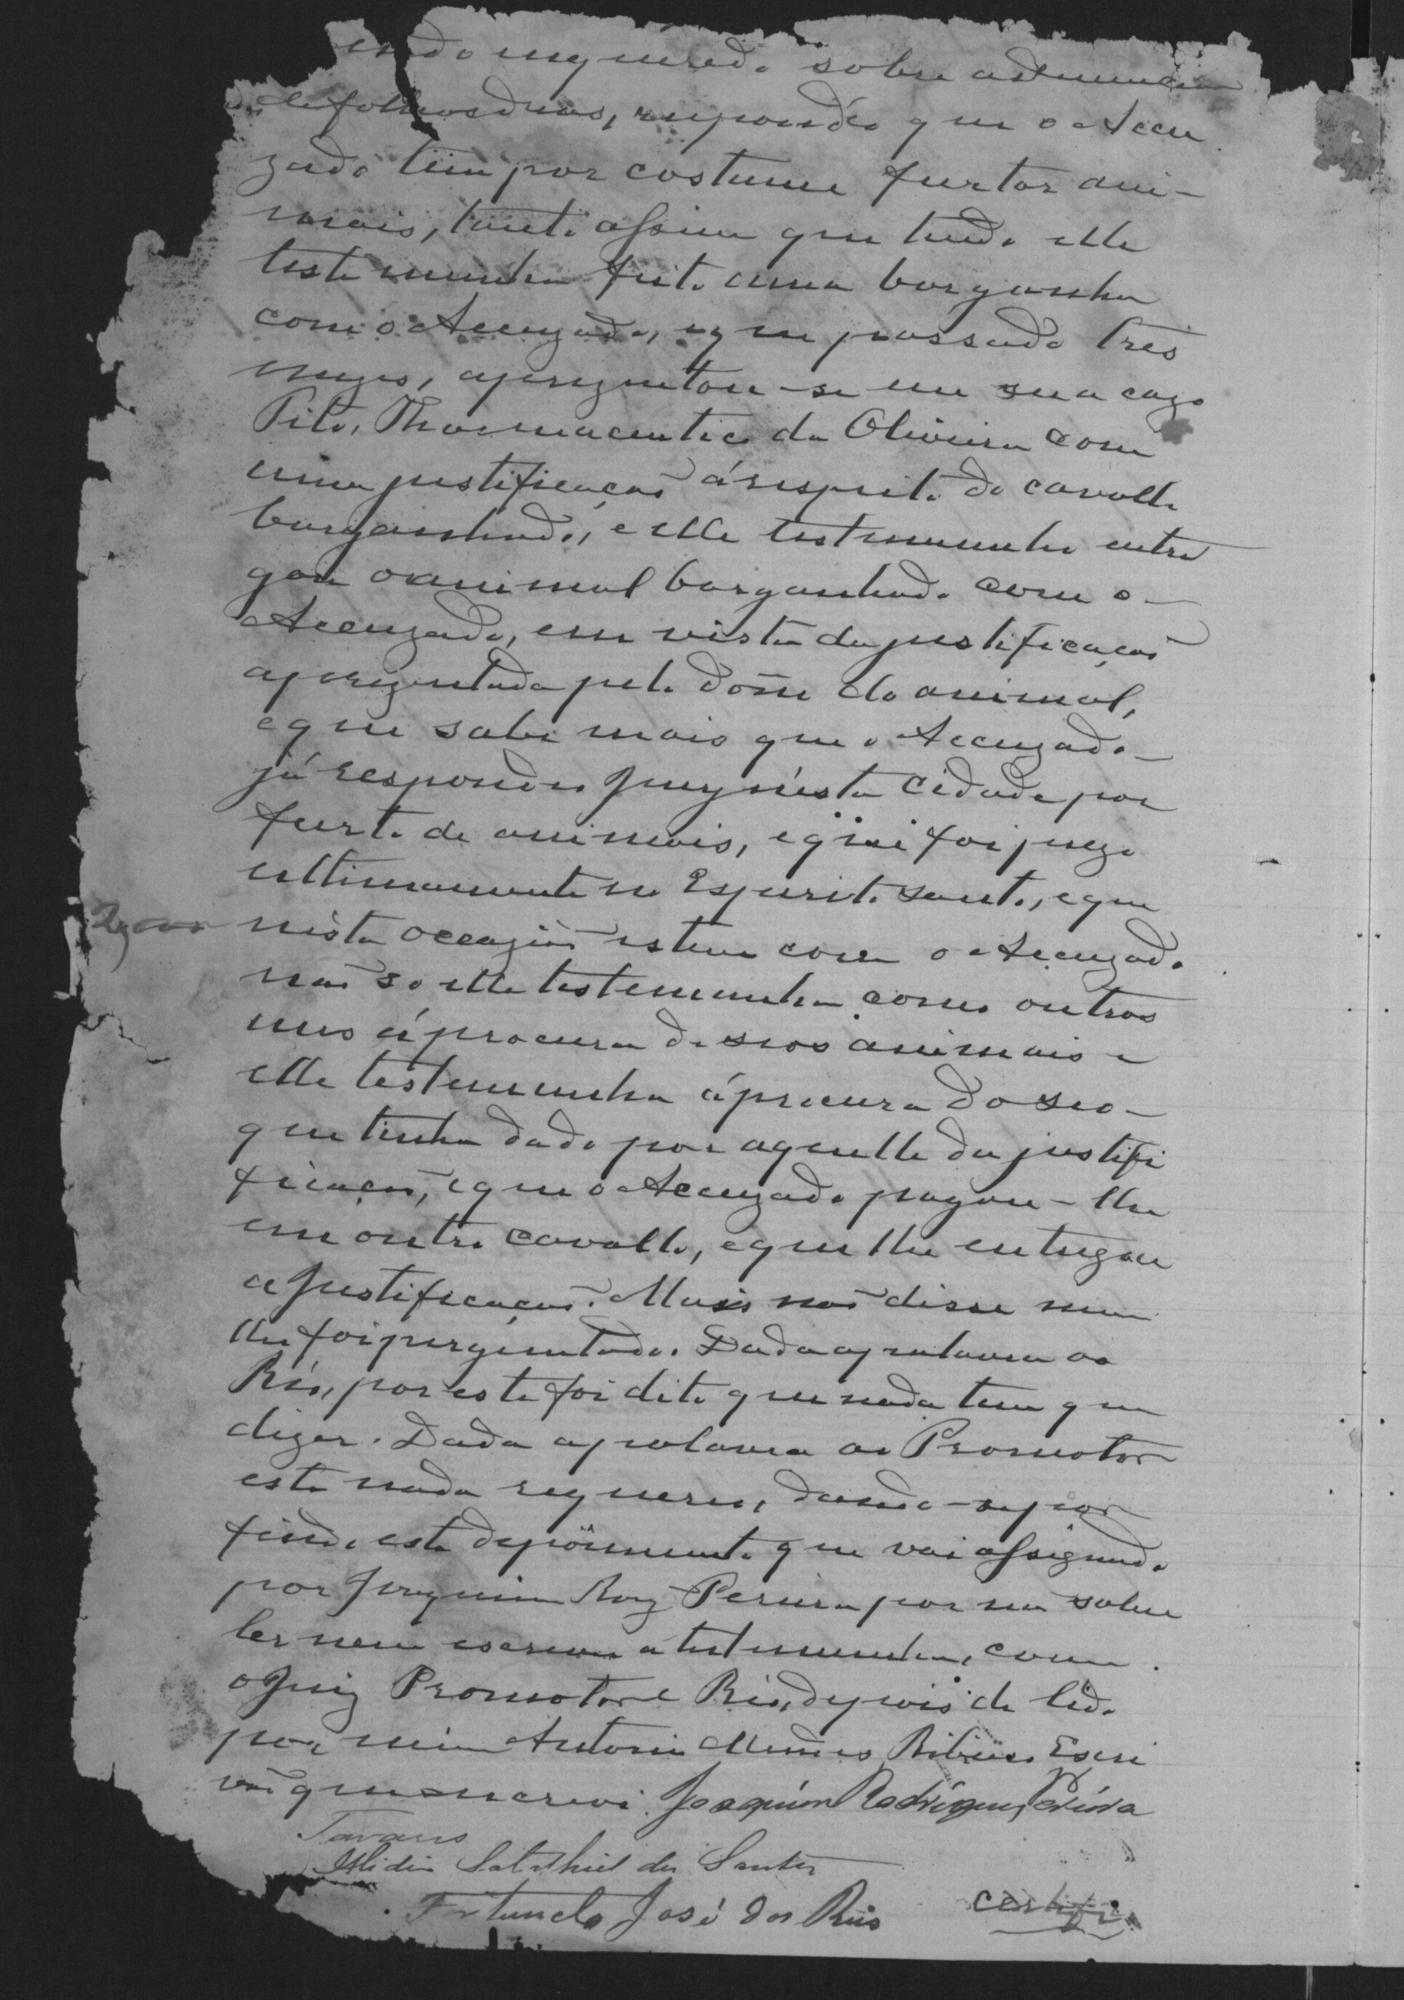 endo inquerido sobre a denuncia
de folhas duas, respondéo que o Accu
zado tem por costume furtar ani-
maes, tanto assim que tendo elle
testemunha feito uma barganha
com o Accuzado, e que passado tres
mezes, aprezentou-se em sua caza
Tito, Pharmaceutico da Oliveira com
uma justificação á respeito do cavallo
barganhado, e elle testemunha entre
gou o animal barganhado com o
Accuzado, em vista da justificação
aprezentada pelo dono do animal,
e que sabe mais que o Accuzado
já respondeo Jury nésta cidade por
furto de animais, e que foi prezo
ultimamente no Espirito Santo, e que
nésta occazião esteve com o Accuzado
não só elle testemunha como outros
mos á procura de seos animais e
elle testemunha á procura do seo
que tinha dado por aquelle da justifi
ficação, e que o Accuzado pagou-lhe
um outro cavallo, e que lhe entregou
a Justificação. Mais não disse nem
lhe foi perguntado. Dada a palavra ao
Réo, por este foi dito que nada tem que
dizer. Dada a palavra ao Promotor
este nada requereu, dando-se por
findo este depoimento que vai assignado
por Joaquim Roiz Pereira por não saber
ler nem escrever a testemunha, com
o Juiz Promotor e Réo, depois de lido
por mim Antonio Mendes Ribeiro Escri
vão que escrevi. Joaquim Rodrigues Pereira
Tavares
Salathiel dos Santos
Fortunato José dos Reis certifi